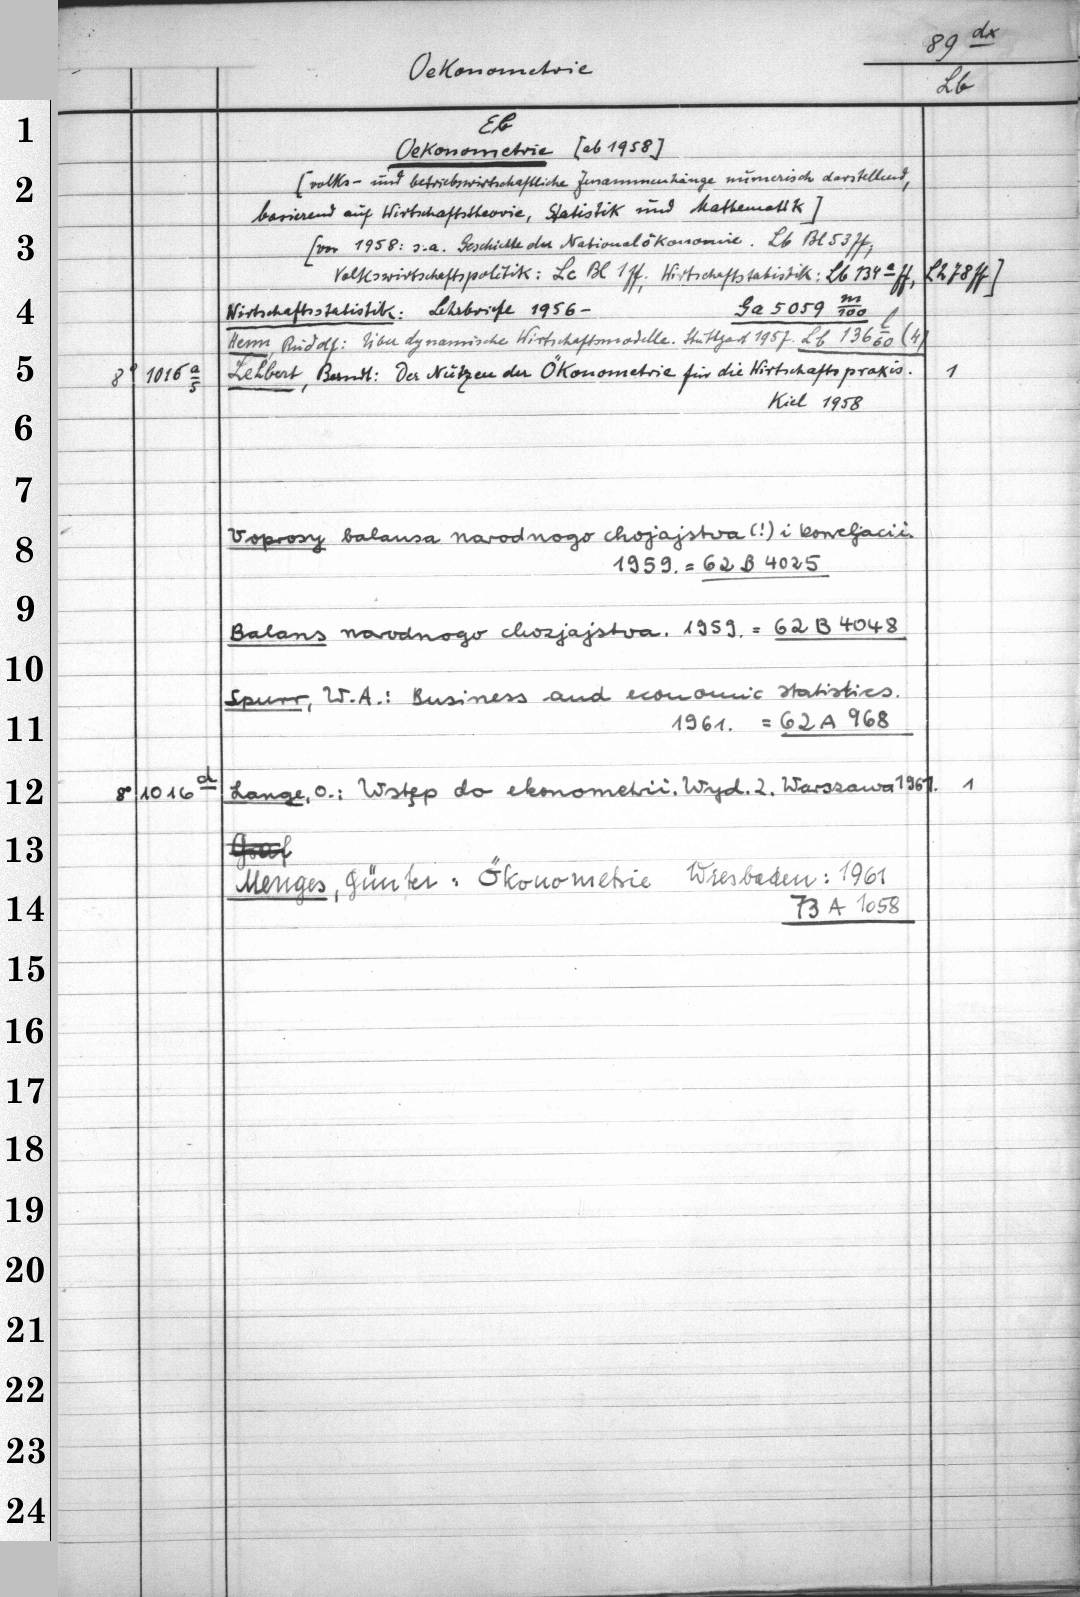 Oekonometrie
89 dx
Lb
1
Eb
Oekonometrie [ab 1958]
2
[volks- und betriebswirtschaftliche Zusammenhänge numerisch darstellend,
basierend auf Wirtschaftstheorie, Statistik und Mathematik]
3
[vor 1958: s.a. Geschichte der Nationalökonomie. Lb Bl 53ff,
Volkswirtschaftspolitik: Lc Bl 1ff. Wirtschaftstatistik: Lb 134 a ff, Lh 78 ff]
4
Wirtschaftsstatistik: Lehrbriefe 1956- Ga 5059 m/100
Henn, Rudolf: Über dynamische Wirtschaftsmodelle. Stuttgart 1957. Lb 136 l/60 (4)
5
8° 1016 a/5 Lehbert, Berndt: Der Nutzen der Ökonometrie für die Wirtschaftspraxis. 1
Kiel 1958
6
7
8
Voprosy balansa narodnogo chojajstva (!) i korreljacii.
1959. = 62 B 4025
9
Balans narodnogo chozjajstva. 1959. = 62 B 4048
10
Spurr, W.A.: Business and economic statistics.
11
1961. = 62 A 968
12
8° 1016 d Lange, O.: Wstęp do ekonometrii. Wyd. 2. Warszawa 1961. 1
13
Graf
Menges, Günter: Ökonometrie Wiesbaden: 1961
14
73 A 1058
15
16
17
18
19
20
21
22
23
24